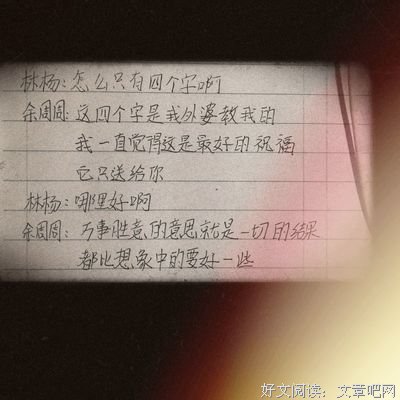 林杨：怎么只有四个字啊
余周周：这四个字是我外婆教我的
我一直觉得这是最好的祝福
它只送给你
林杨：哪里好啊
余周周：万事胜意的意思就是一切的结果
都比想象中的要好一些
好文阅读：文章吧网